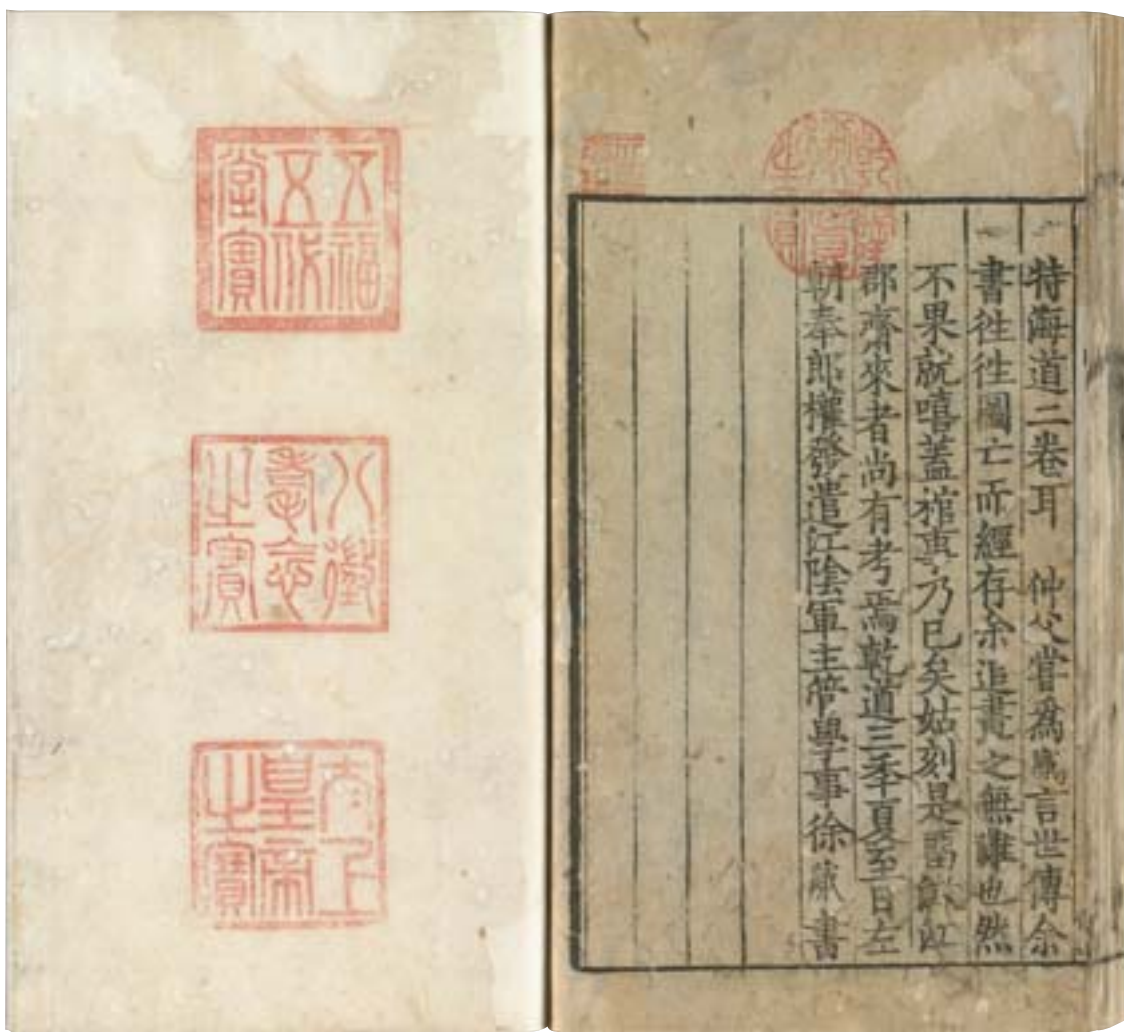 特海道二卷耳　仲父嘗爲蕆言世傳余
書徃徃圖亡而經存余追畫之無難也然
不果就嘻蓋棺事乃已矣姑刻是留澂江
郡齋來者尚有考焉乾道三秊夏至日左
朝奉郎權發遣江陰軍主管學事徐蕆書
乾隆御覽之寶
五福五代堂寶
八徵耄念之寶
太上皇帝之寶